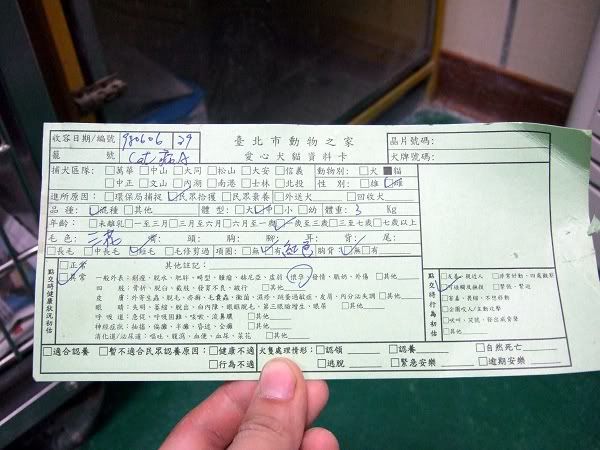 收容日期/編號 980606 29 臺北市動物之家 晶片號碼:
籠 號 Cat 病A 愛心犬貓資料卡 犬牌號碼:
捕犬區隊: □萬華 □中山 □大同 □松山 □大安 □信義 動物別: □犬 ■貓
□中正 □文山 □內湖 □南港 □士林 □北投 性 別: □雄 □雌
進所原因: □環保局捕捉 □民眾拾獲 □民眾棄養 □外送犬 □回收犬
品 種: □混種 □其他 體 型: □大 □中 □小 □幼 體重: 3 Kg
年齡: □未離乳 □一至三月 □三月至六月 □六月至一歲 □一歲至三歲 □三至七歲 □七歲以上
毛 色: 三花 嘴: 頭: 胸: 腳: 耳: 背: 尾:
□長毛 □中長毛 □短毛 □毛修剪過 項圈: □無 □有 紅色 胸背: □無 □有
點交時健康狀況初估
□正常 其他註記:
□異常 一般外表: 剩瘦、脫水、肥胖、畸型、腫瘤、赫尼亞、虛弱、懷孕、發情、肌奶、外傷 □其他
四 肢: 骨折、脫臼、截肢、發育不良、跛行 □其他
皮 膚: 外寄生蟲、脫毛、疥癬、毛囊蟲、黴菌、濕疹、跳蚤過敏症、皮屑、內分泌失調 □其他
眼 睛: 失明、萎縮、脫出、白內障、眼瞼脫毛、第三眼瞼增生、眼屎 □其他
呼 吸 道: 急促、呼吸困難、咳嗽、流鼻膿 □其他
神經症狀: 抽搐、偏癱、半癱、昏迷、全癱 □其他
消化道/泌尿道: 嘔吐、腹瀉、血便、血尿、茶花 □其他
點交時行為初估
□友善、親近人 □非常好動、四處觀察
□可接觸及撫摸 □緊張、緊迫
□害羞、畏縮、不想移動
□企圖咬人/主動攻擊
□吠叫、哭號、發出威脅聲
□其他
□適合認養 □暫不適合民眾認養原因: □健康不適 犬隻處理情形: □認領 □認養 □自然死亡
□行為不適 □逃脫 □緊急安樂 □逾期安樂